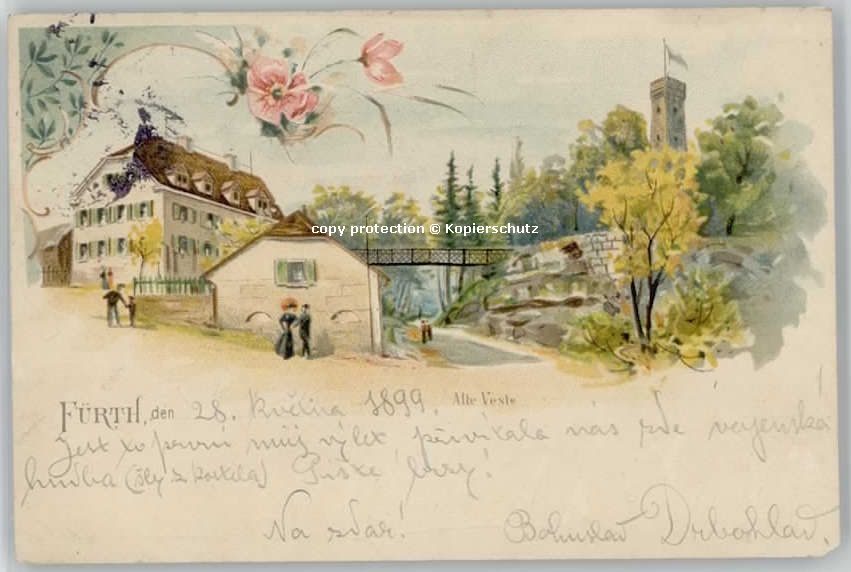 copy protection © Kopierschutz
Alte Veste
FÜRTH, den 28. Května 1899.
Jest to první můj výlet, přivítala nás zde vojenská
hudba (šly z kostela) Pište, brzy!
Na zdar! Bohuslav Drbohlav.